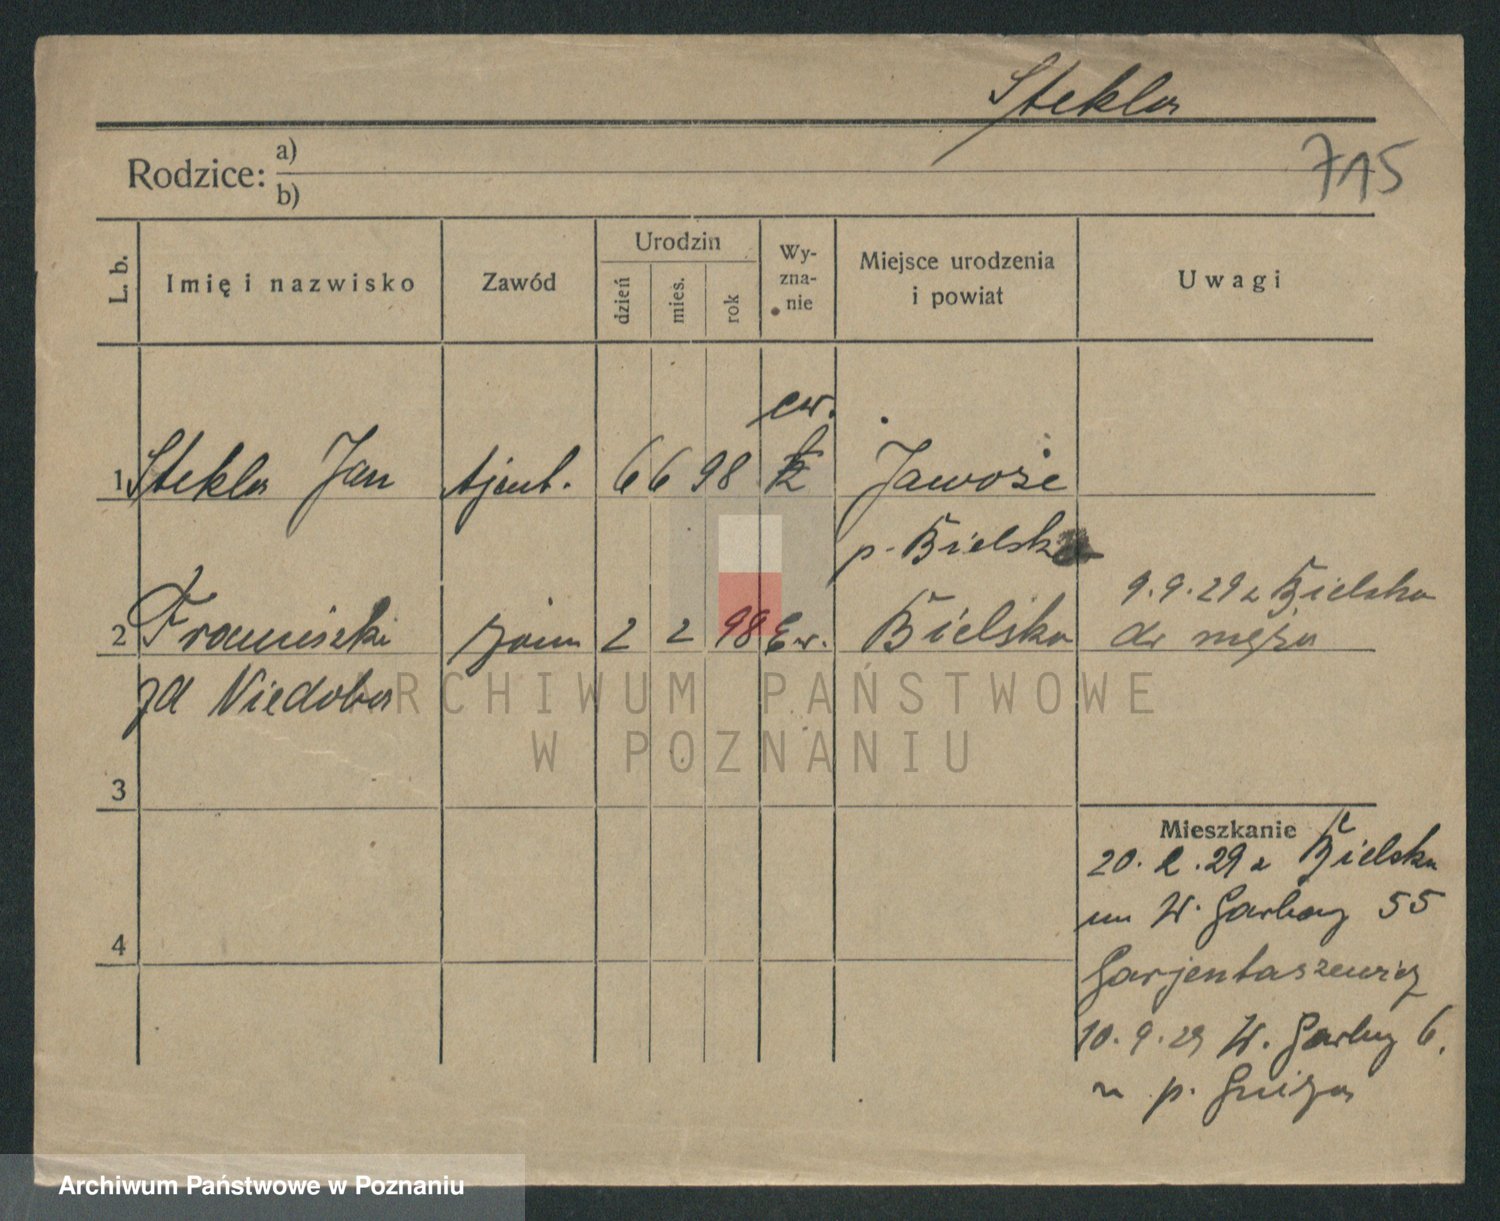 Stekla
715
Rodzice: a)
b)
L. b. Imię i nazwisko Zawód Urodzin dzień mies. rok Wy-zna-nie Miejsce urodzenia i powiat Uwagi
ew.
1 Stekla Jan Ajent. 6 6 98 Jaworze
p. Bielsk
2 Franciszka żona 2 2 98 Ew. Bielska
zd Niedoba
9.9.29 z Bielska
do męża
3
4
Mieszkanie
20. 2. 29 z Bielska
W. Garbary 55
Garjentaszewicz
10. 9. 29 W. Garbary 6.
u p.
ARCHIWUM PAŃSTWOWE
W POZNANIU
Archiwum Państwowe w Poznaniu